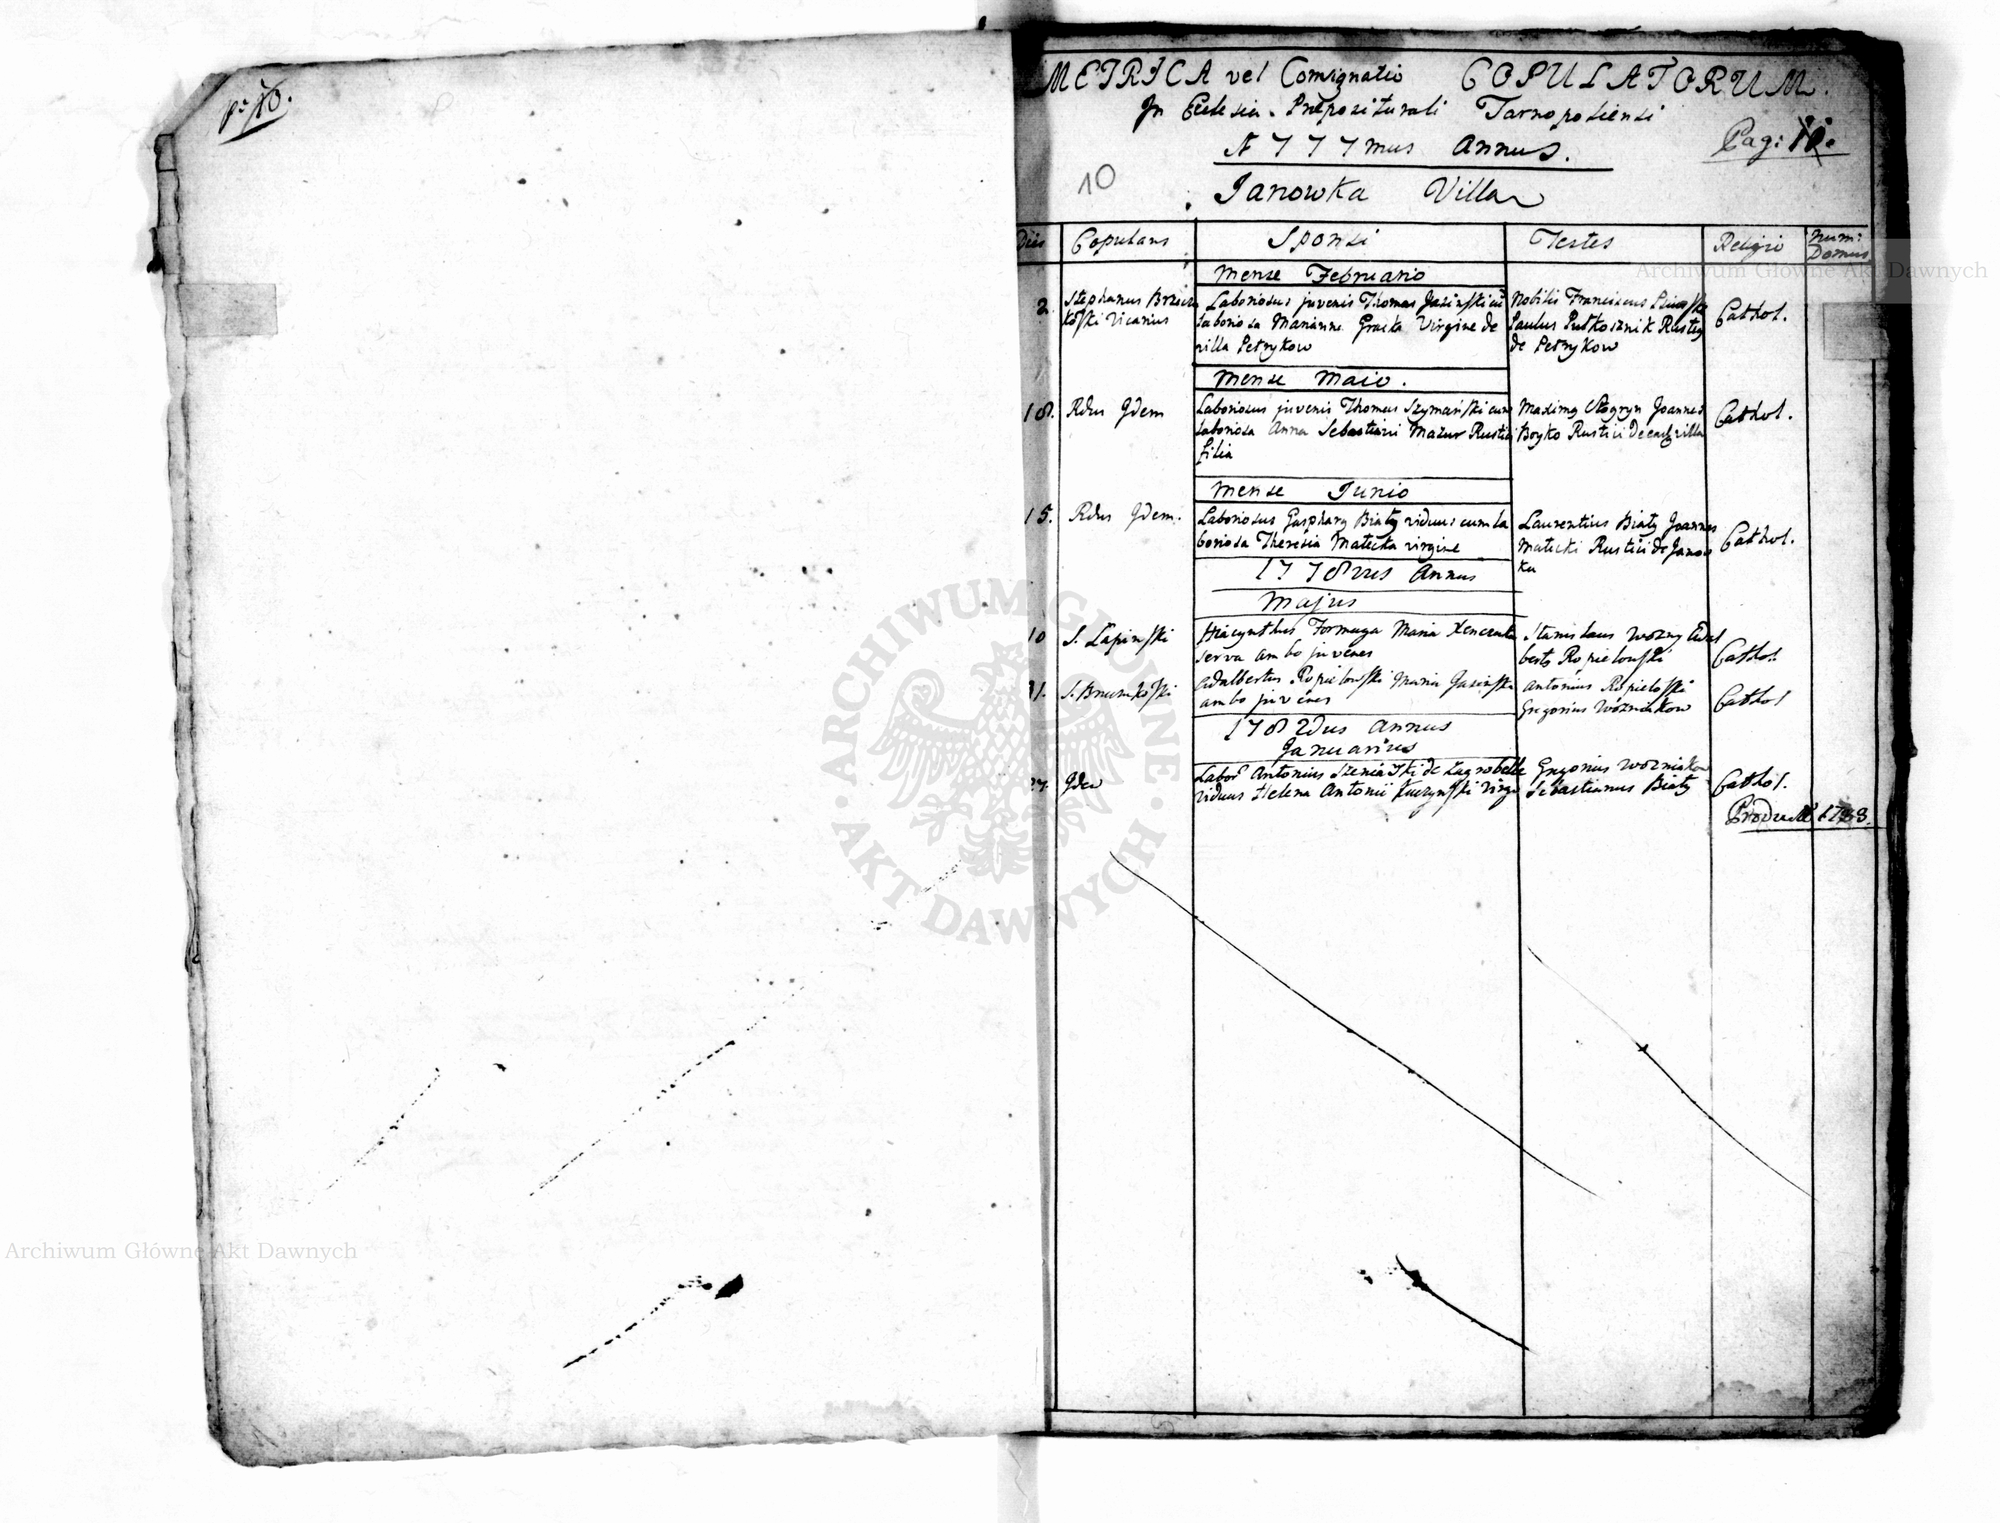 p: 10.
METRICA vel Consignatio COPULATORUM.
In Ecclesia Præpositurali Tarnopoliensi
1777mus Annus.
Pag:
10
Janowka Villa
Dies Copulans Sponsi Testes Religio Num: Domus
Mense Februario
2. Stephanus
koski Vicarius
Laboriosus juvenis Thomas Jasinski cū
laboriosa Marianna Gracka Virgine de
villa Petrykow
Nobilis Franciscus
Paulus Pułkosznik Rustici
de Petrykow
Cathol.
Mense Maio.
18. Rdus Idem
Laboriosus juvenis Thomas Szymański cum
laboriosa Anna Sebastiani Mazur Rustici
filia
Joannes
Boyko Rustici de eadē villa
Cathol.
Mense Junio
15. Rdus Idem.
Laboriosus Gasparus Biały viduus cum la
boriosa Theresia Małecka virgine
Laurentius Biały Joannes
Małecki Rustici de Janow
ka
Cathol.
1778vus Annus
Majus
10 S. Lapinski
Hiacynthus Formuga Maria
serva ambo juvenes
Stanislaus Wozny Adal
berts Ropielowski
Cathol.
S. Brumkoski
Adalbertus Ropielowski Maria Jasinska
ambo juvenes
Antonius Ropieloski
Gregorius Wozniakow
Cathol
1782dus Annus
Januarius
27. Idem
Labor Antonius de Zagrobelle
viduus Helena Antonii Kuczynski Virgo
Gregorius Wozniakow
Sebastianus Biały
Cathol.
Product 1788.
ARCHIWUM GŁÓWNE
AKT DAWNYCH
Archiwum Główne Akt Dawnych
Archiwum Główne Akt Dawnych